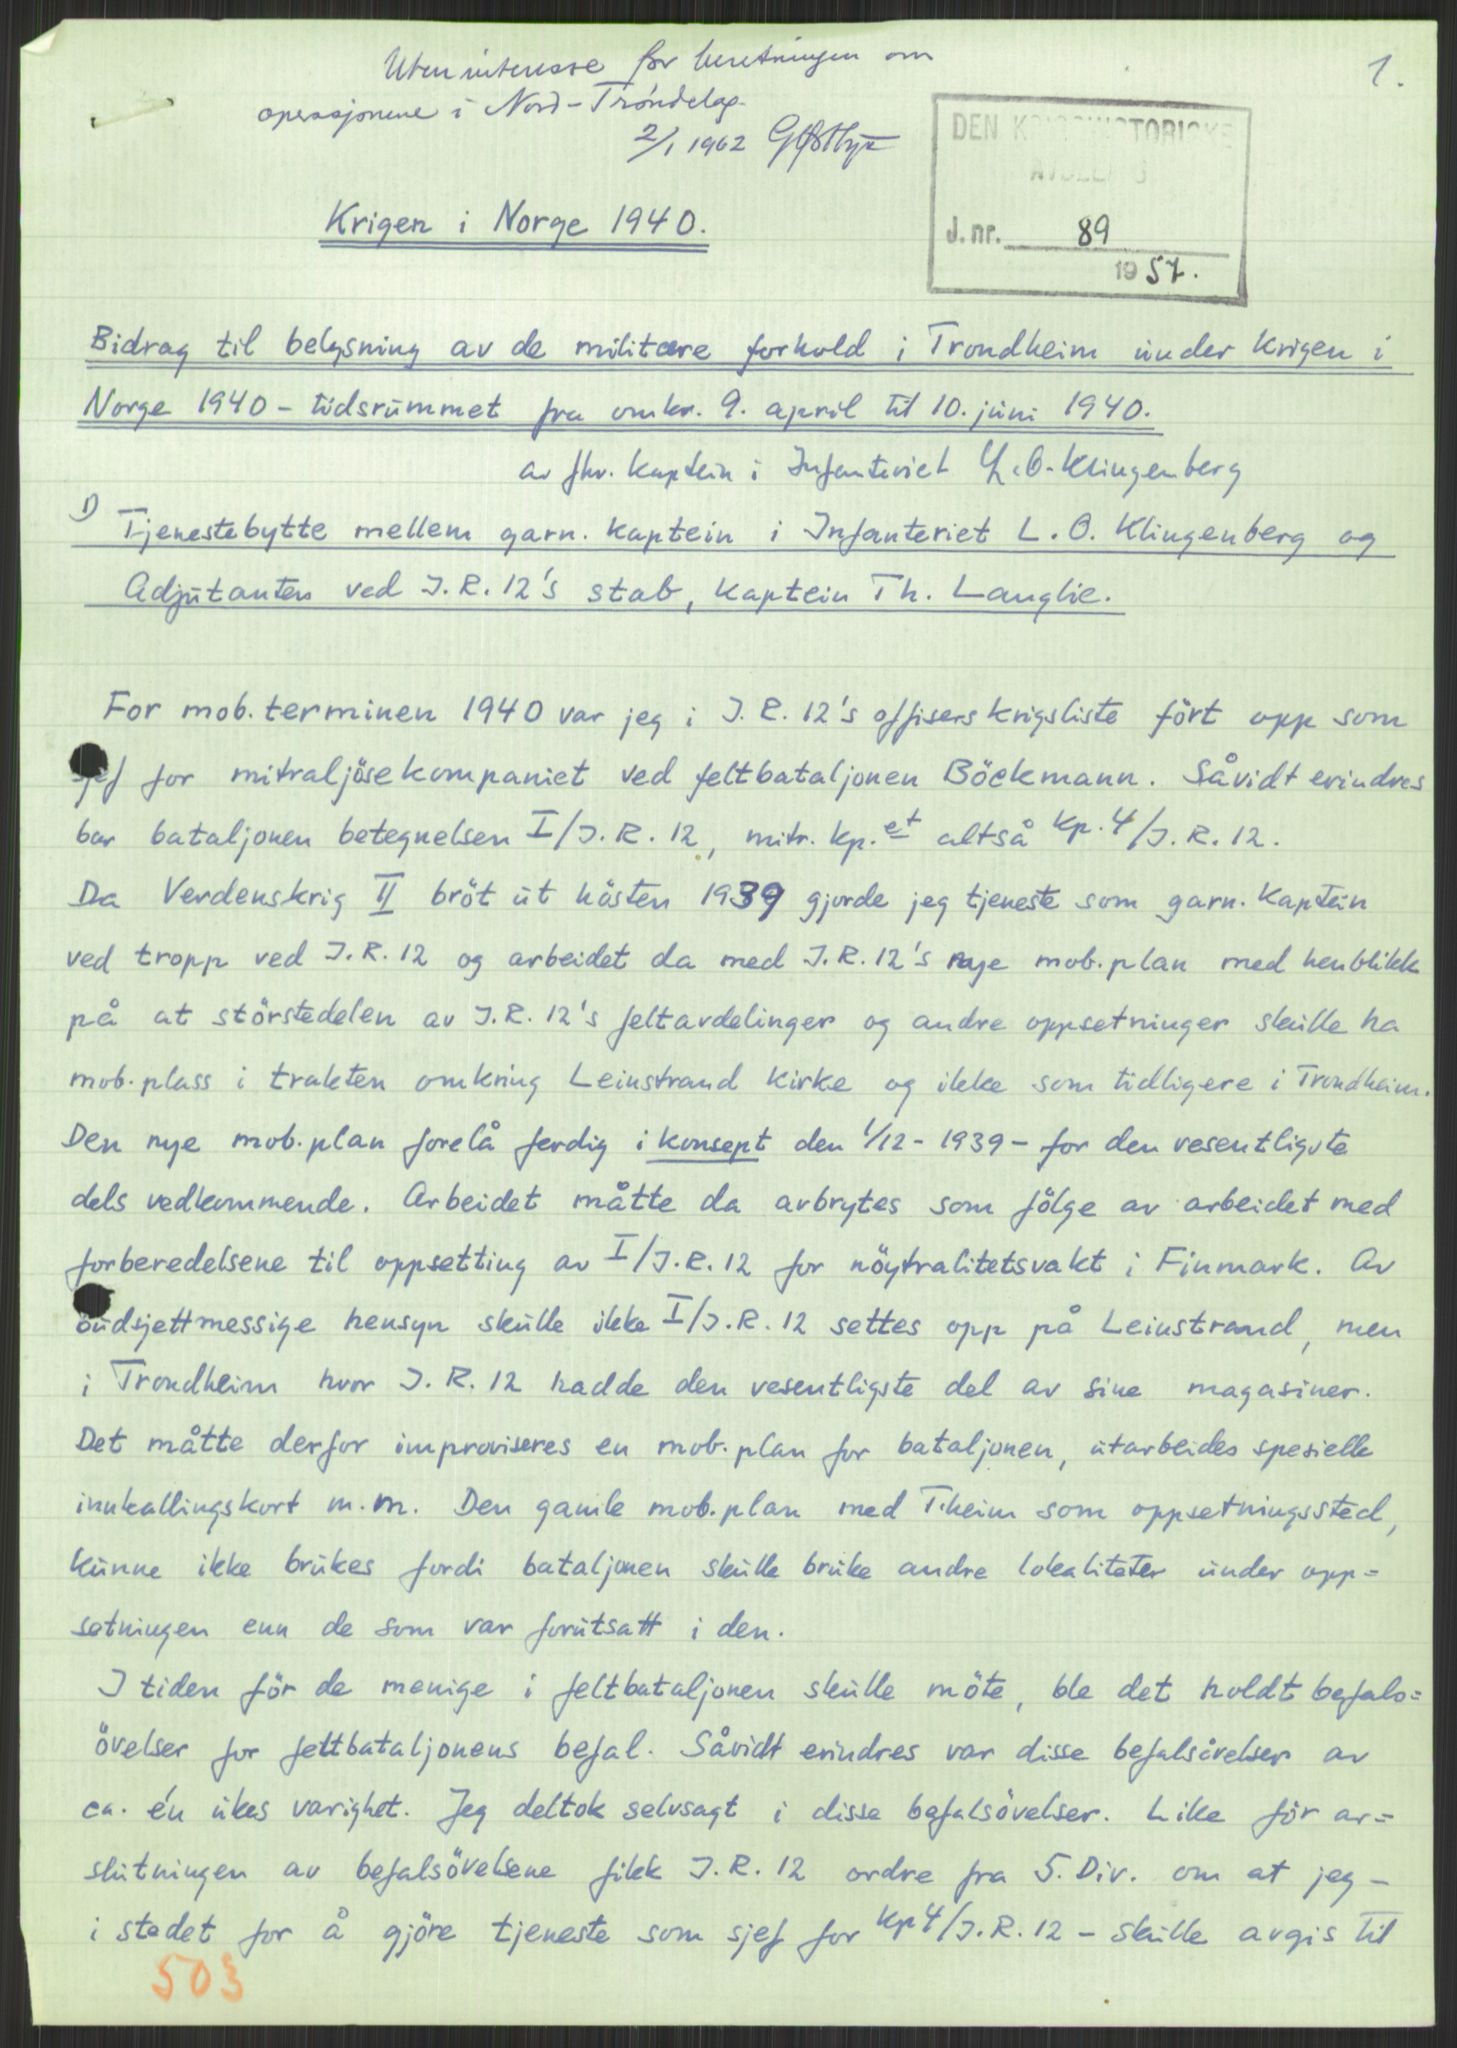 Uten interesse for beretningen om
operasjonene i Nord-Tröndelag.
2/1 1962
1.
DEN KRIGSHISTORISKE
AVDELING
J. nr. 89
1957.
Krigen i Norge 1940.
Bidrag til belysning av de militære forhold i Trondheim under krigen i
Norge 1940 - tidsrummet fra omkr. 9. april til 10. juni 1940.
av fhv. kaptein i Infanteriet L.O. Klingenberg
1) Tjenestebytte mellem garn. kaptein i Infanteriet L.O. Klingenberg og
Adjutanten ved J.R. 12's stab, kaptein Th. Langlie.
For mob. terminen 1940 var jeg i J.R. 12's offisers krigsliste fört opp som
sjef for mitraljösekompaniet ved feltbataljonen Böckmann. Såvidt erindres
bar bataljonen betegnelsen I/J.R. 12, mitr. kp.et altså kp. 4/J.R. 12.
Da Verdenskrig II bröt ut hösten 1939 gjorde jeg tjeneste som garn. kaptein
ved tropp ved J.R. 12 og arbeidet da med J.R. 12's nye mob. plan med henblikk
på at störstedelen av J.R. 12's feltavdelinger og andre oppsetninger skulle ha
mob. plass i trakten omkring Leinstrand kirke og ikke som tidligere i Trondheim.
Den nye mob. plan forelå ferdig i konsept den 1/12 - 1939 - for den vesentligste
dels vedkommende. Arbeidet måtte da avbrytes som fölge av arbeidet med
forberedelsene til oppsetting av I/J.R. 12 for nöytralitetsvakt i Finmark. Av
budsjettmessige hensyn skulle ikke I/J.R. 12 settes opp på Leinstrand, men
i Trondheim hvor J.R. 12 hadde den vesentligste del av sine magasiner.
Det måtte derfor improviseres en mob. plan for bataljonen, utarbeides spesielle
innkallingskort m.m. Den gamle mob. plan med T.heim som oppsetningssted,
kunne ikke brukes fordi bataljonen skulle bruke andre lokaliteter under opp=
setningen enn de som var forutsatt i den.
I tiden för de menige i feltbataljonen skulle möte, ble det holdt befals=
övelser for feltbataljonens befal. Såvidt erindres var disse befalsövelser av
ca. én ukes varighet. Jeg deltok selvsagt i disse befalsövelser. Like för av=
slutningen av befalsövelsene fikk J.R. 12 ordre fra 5. Div. om at jeg -
i stedet for å gjöre tjeneste som sjef for kp 4/J.R. 12 - skulle avgis til
503